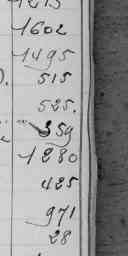 1602
1495
515
525.
359
1280
485
971
28